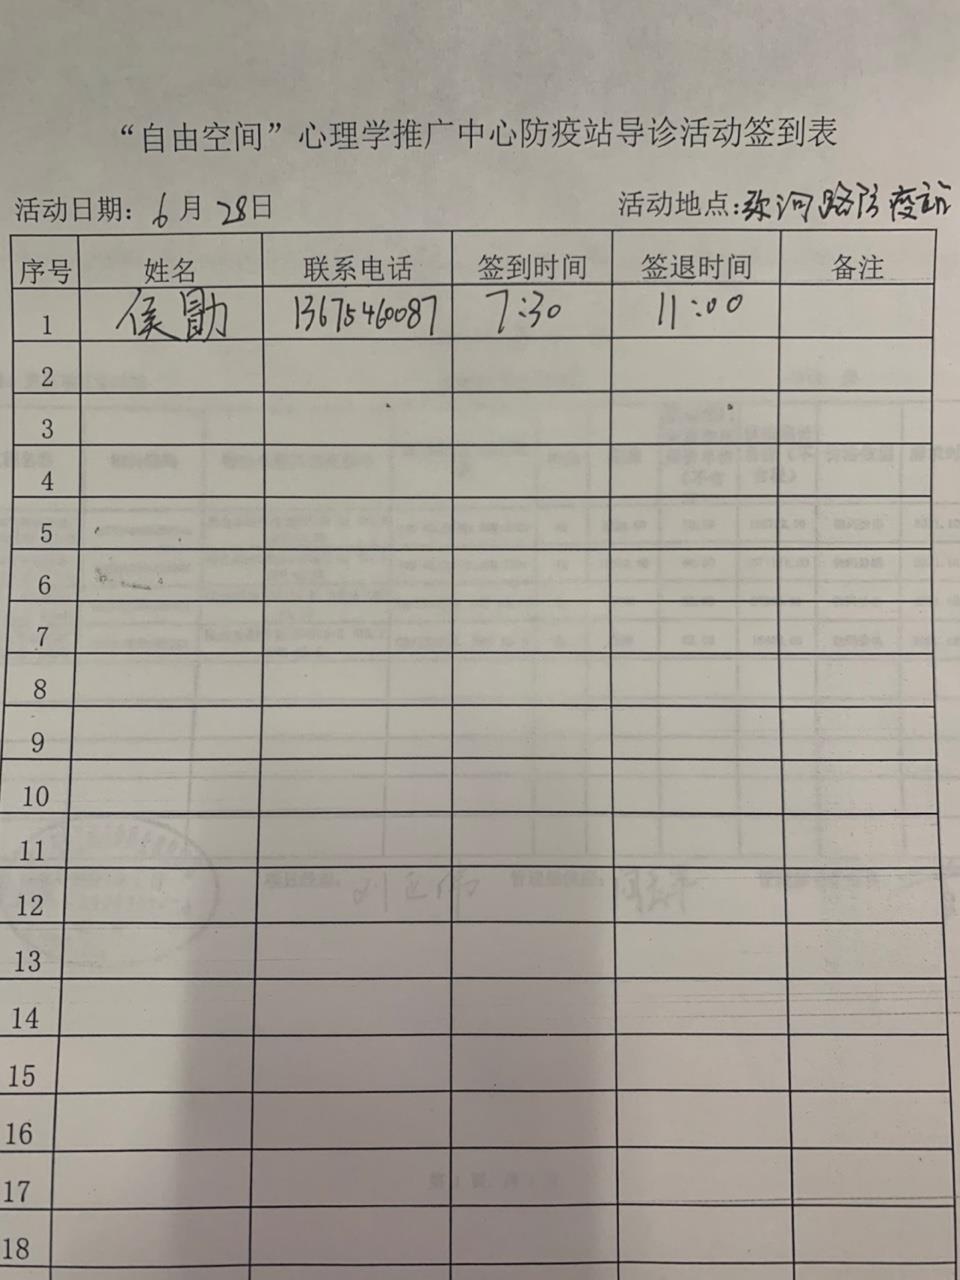 “自由空间”心理学推广中心防疫站导诊活动签到表
活动日期：6月28日 活动地点：弥河路防疫站
序号 姓名 联系电话 签到时间 签退时间 备注
1 侯勖 13675460087 7:30 11:00
2
3
4
5
6
7
8
9
10
11
12
13
14
15
16
17
18